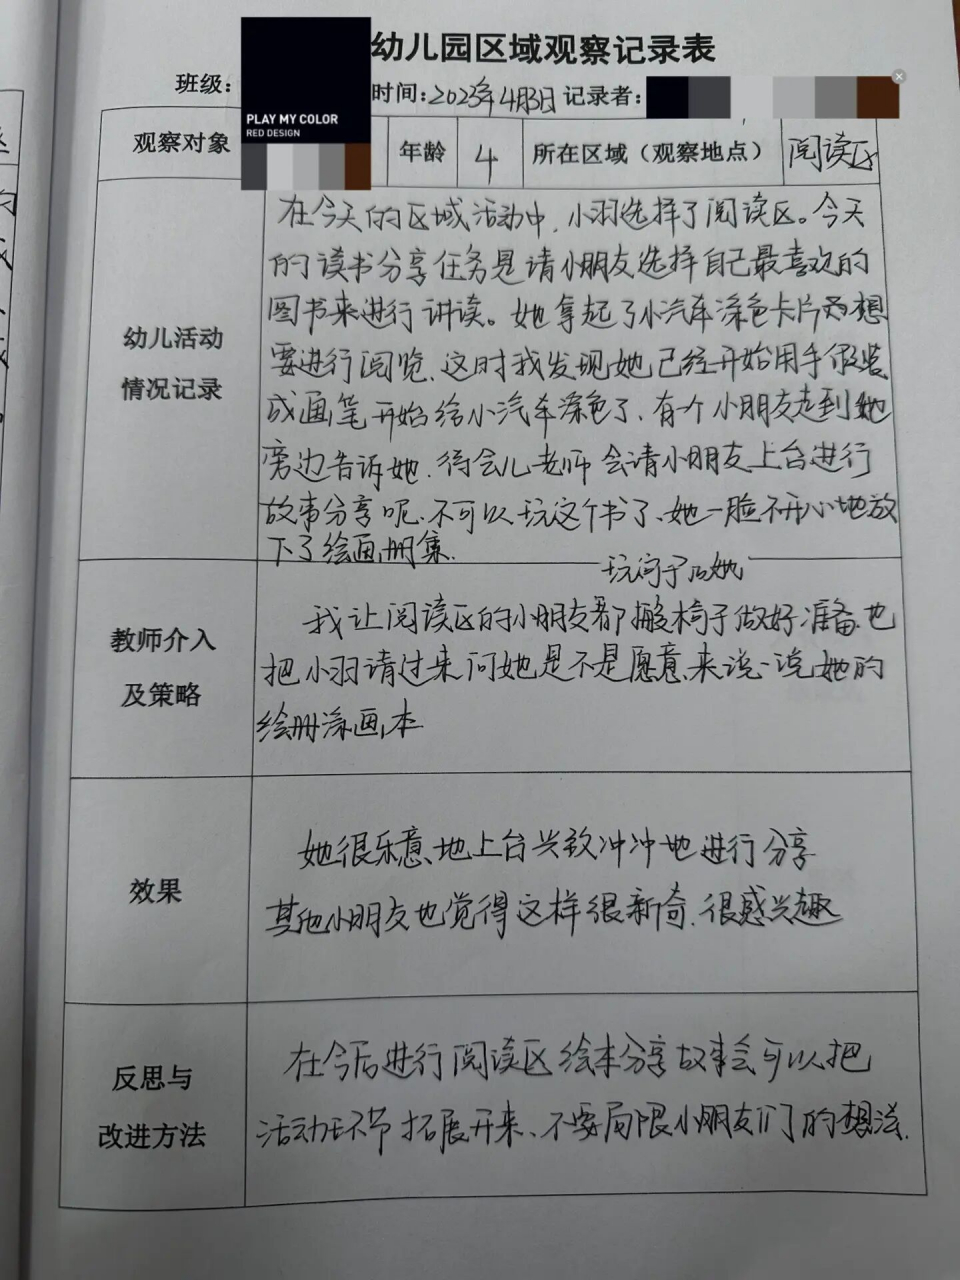 幼儿园区域观察记录表
班级:
时间:2023年4月3日 记录者:
PLAY MY COLOR
RED DESIGN
观察对象 年龄 4 所在区域（观察地点） 阅读区
幼儿活动
情况记录
在今天的区域活动中,小羽选择了阅读区。今天
的读书分享任务是请小朋友选择自己最喜欢的
图书来进行讲读。她拿起了小汽车涂色卡片想
要进行阅览、这时我发现她已经开始用手假装
成画笔开始给小汽车涂色了、有一个小朋友走到她
旁边告诉她、待会儿老师会请小朋友上台进行
故事分享呢、不可以玩这个书了、她一脸不开心地放
下了绘画册集.
教师介入
及策略
我让阅读区的小朋友都搬椅子做好准备.也
把小羽请过来问她是不是愿意、来说一说她的
绘册涂画本
效果
她很乐意、地上台兴致冲冲地进行分享
其他小朋友也觉得这样很新奇、很感兴趣
反思与
改进方法
在今后进行阅读区绘本分享故事会可以把
活动环节拓展开来、不要局限小朋友们的想法.